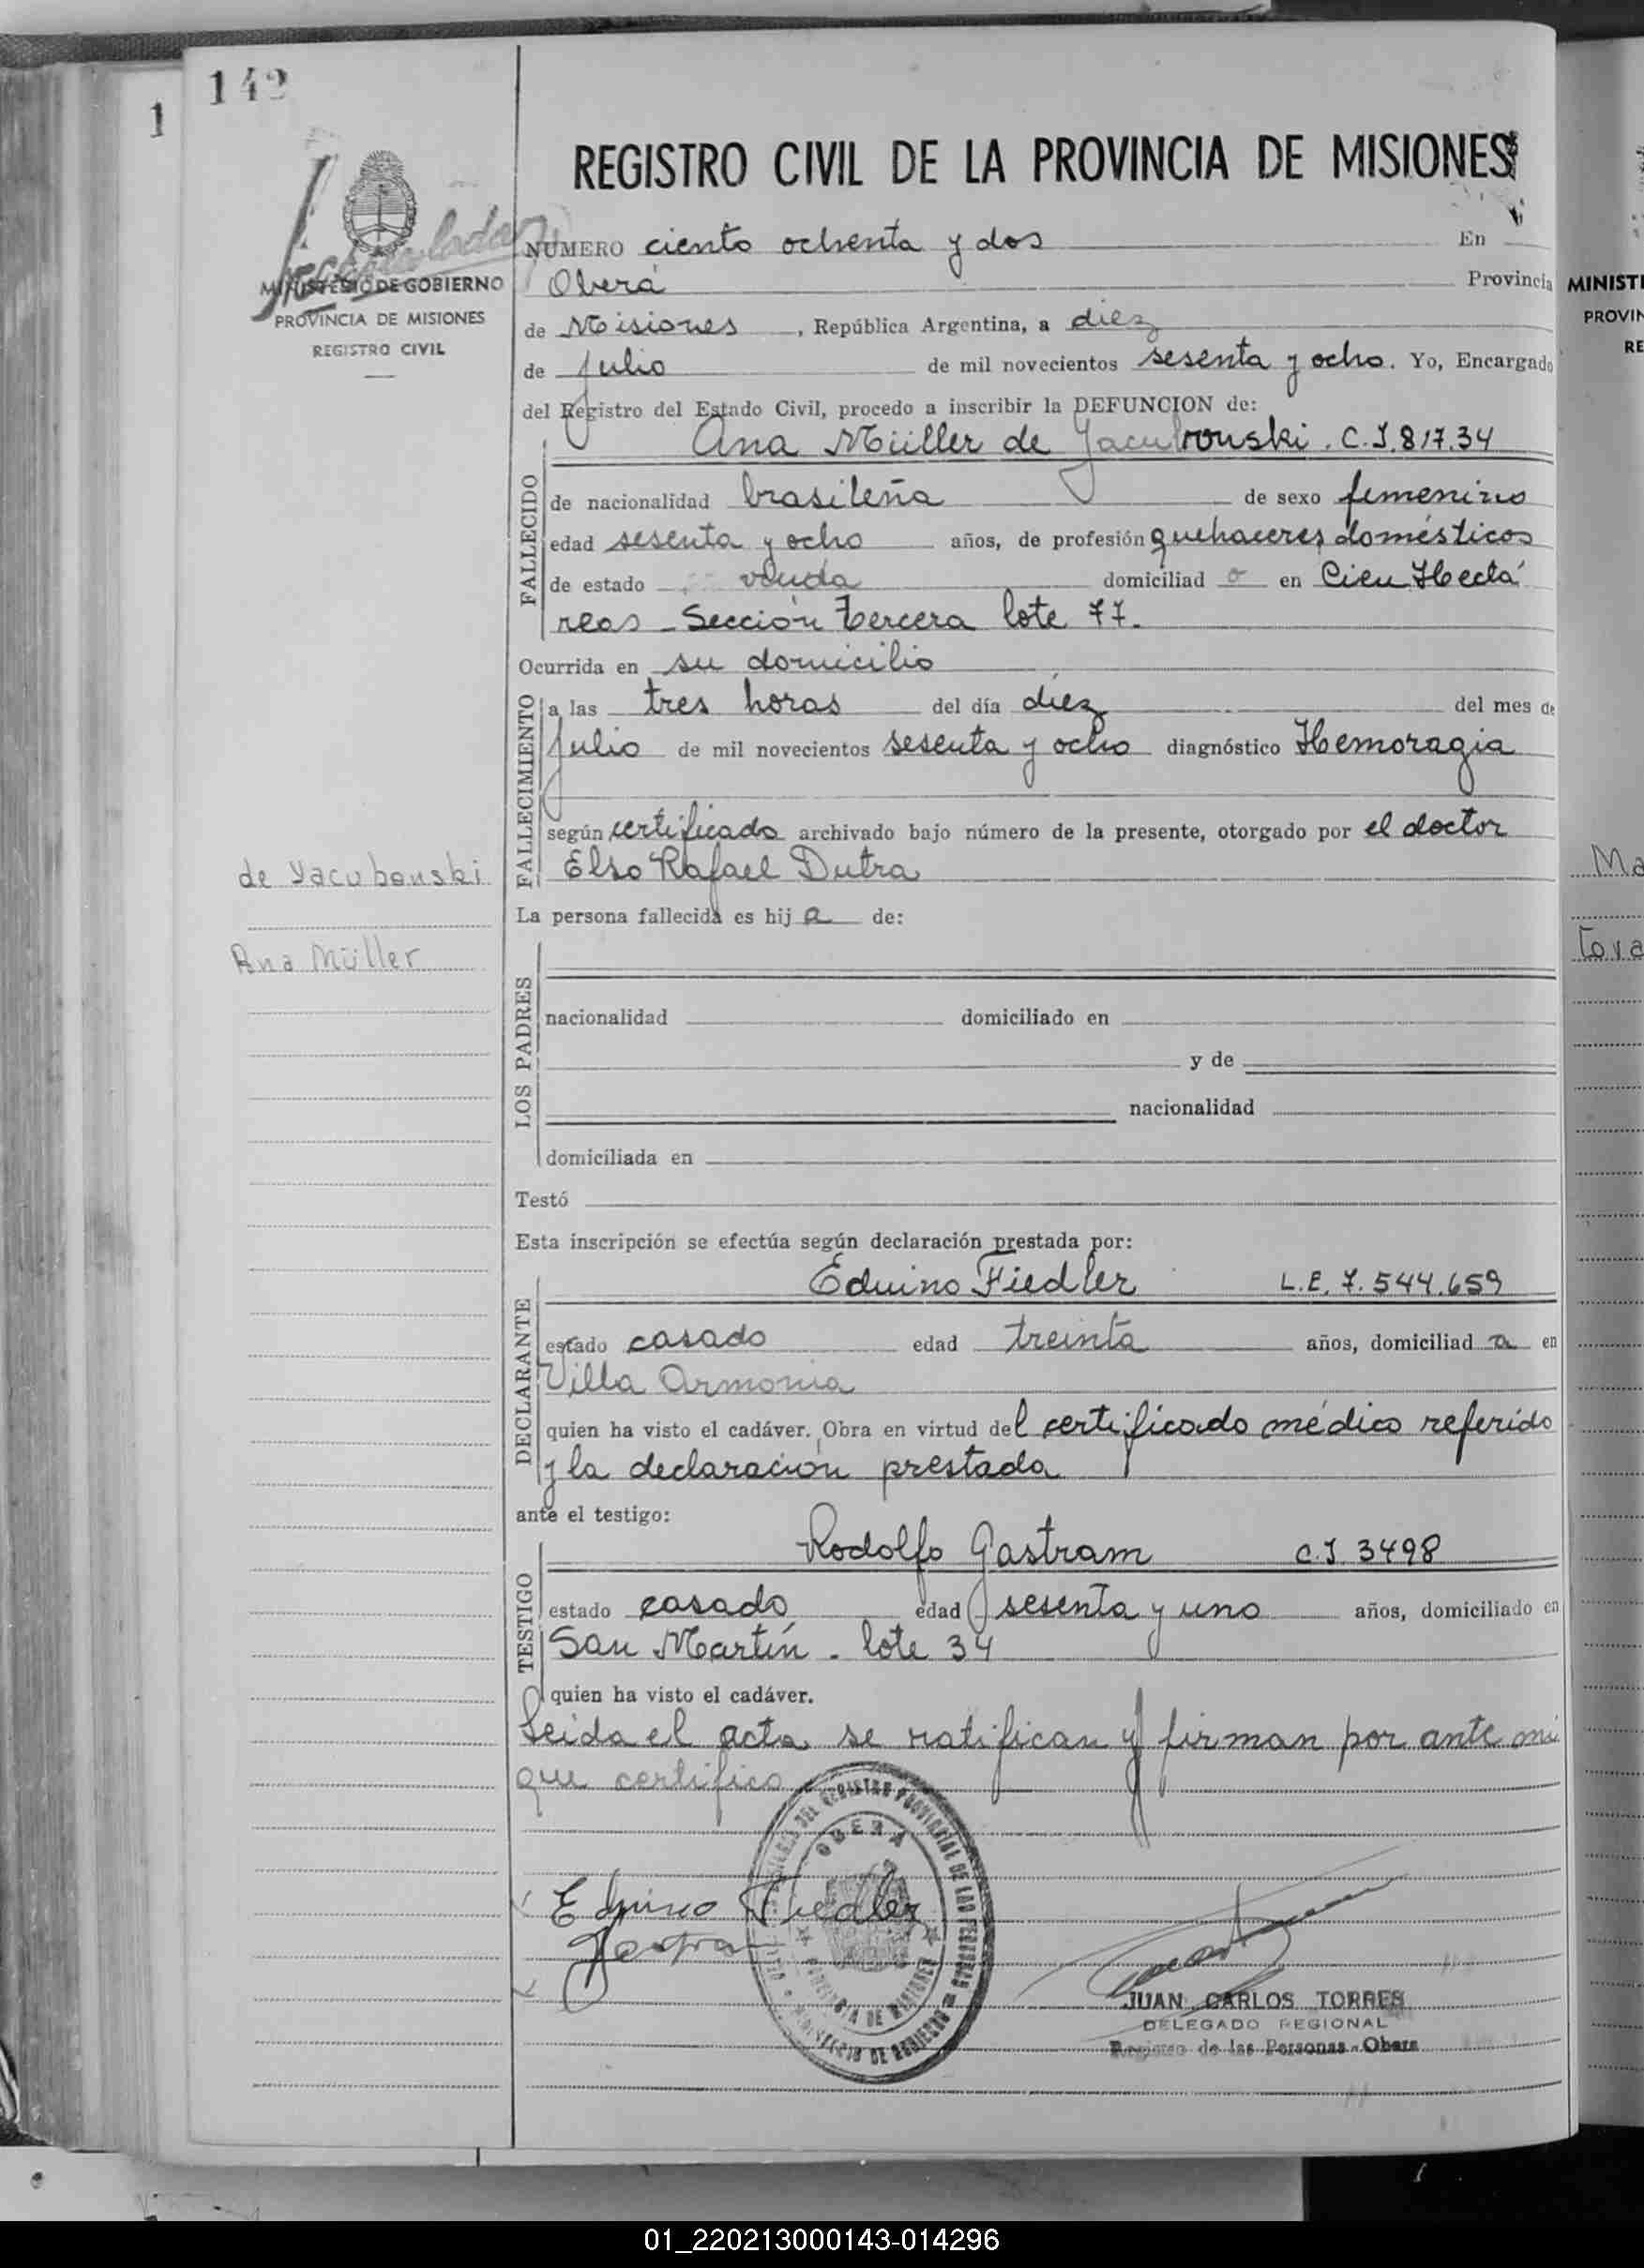 142
1
REGISTRO CIVIL DE LA PROVINCIA DE MISIONES
MINISTERIO DE GOBIERNO
PROVINCIA DE MISIONES
REGISTRO CIVIL
NUMERO ciento ochenta y dos En
Oberá Provincia
de Misiones, República Argentina, a diez
de Julio de mil novecientos sesenta y ocho. Yo, Encargado
del Registro del Estado Civil, procedo a inscribir la DEFUNCION de:
Ana Müller de Jacubouski. C.I. 817.34
FALLECIDO
de nacionalidad brasileña de sexo femenino
edad sesenta y ocho años, de profesión quehaceres domésticos
de estado viuda domiciliad o en Cien Hectá
reas - Sección tercera lote 77.
Ocurrida en su domicilio
FALLECIMIENTO
a las tres horas del día diez del mes de
Julio de mil novecientos sesenta y ocho diagnóstico Hemoragia
según certificado archivado bajo número de la presente, otorgado por el doctor
Elso Rafael Dutra
de Yacubouski
Ana Müller
La persona fallecida es hij a de:
LOS PADRES
nacionalidad domiciliado en
y de
nacionalidad
domiciliada en
Testó
Esta inscripción se efectúa según declaración prestada por:
Eduino Fiedler L.E. 7.544.659
DECLARANTE
estado casado edad treinta años, domiciliad a en
Villa Armonia
quien ha visto el cadáver. Obra en virtud del certificado médico referido
y la declaración prestada
ante el testigo:
Rodolfo Gastram C.I. 3498
TESTIGO
estado casado edad sesenta y uno años, domiciliado en
San Martín - lote 34
quien ha visto el cadáver.
Leida el acta se ratifican y firman por ante mi
que certifico
OBERA
PROVINCIA DE MISIONES
MINISTERIO DE GOBIERNO
Eduino Fiedler
JUAN CARLOS TORRES
DELEGADO REGIONAL
Registro de las Personas - Obera
MINISTE
PROVIN
RE
Ma
Tova
01_220213000143-014296